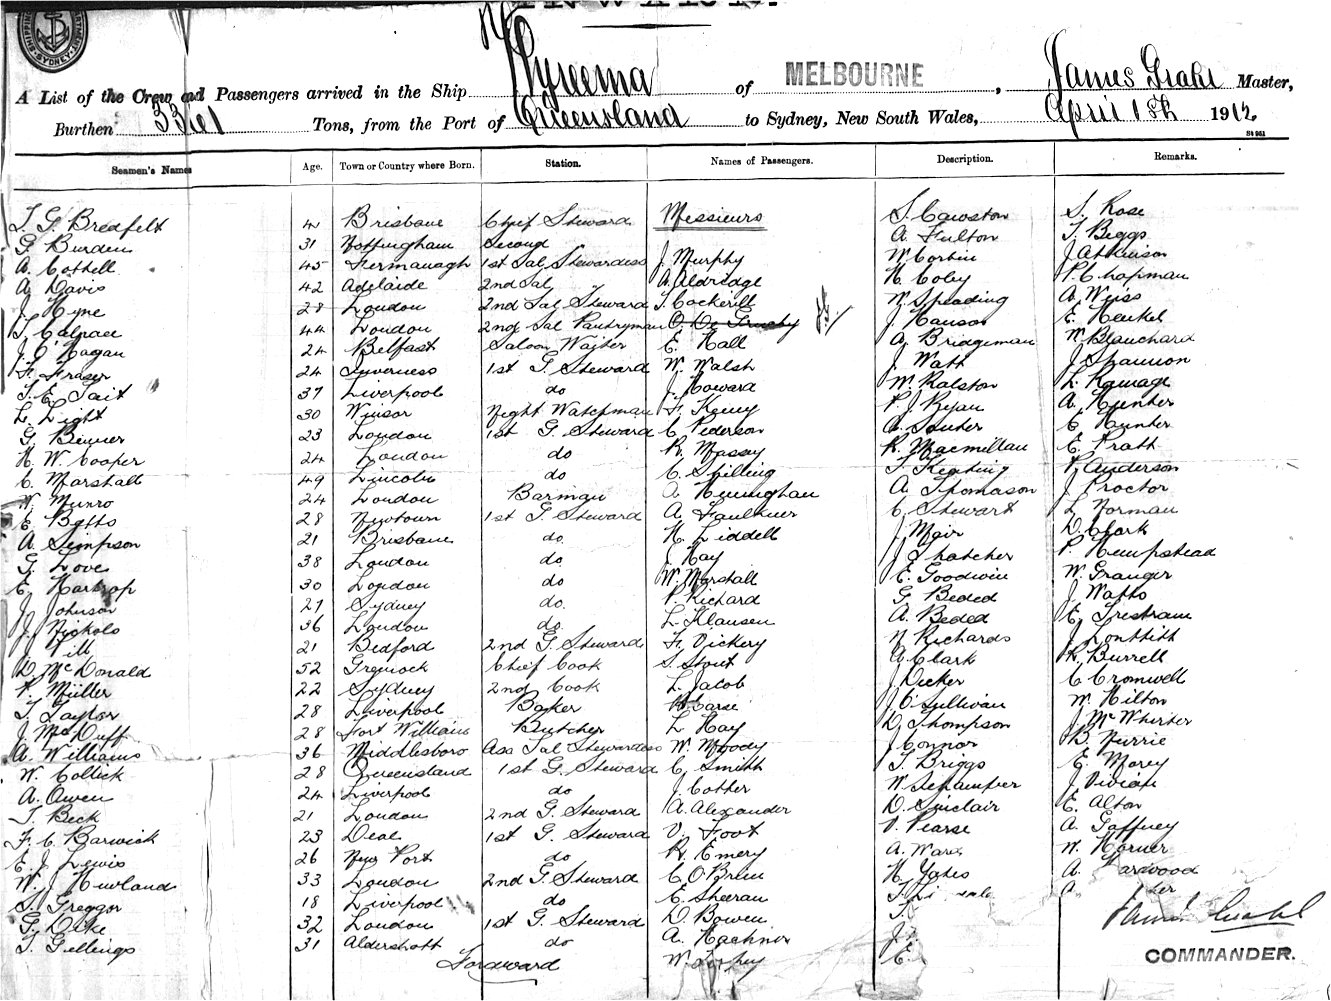 A List of the Crew and Passengers arrived in the Ship Wyreema of MELBOURNE, James Grahl Master,
Burthen 3361 Tons, from the Port of Queensland to Sydney, New South Wales, April 1st 1912.
Seamen's Names Age. Town or Country where Born. Station. Names of Passengers. Description. Remarks.
T. G. Bredfelt 41 Brisbane Chief Steward Messieurs S. Cawston S. Rose
G. Burden 31 Nottingham Second A. Fulton T. Beggs
A. Cothell 45 Fermanagh 1st Sal. Stewardess J. Murphy W. Corbin J. Atkinson
A. Davis 42 Adelaide 2nd Sal. A. Aldridge H. Coley P. Chapman
J. Hyne 28 London 2nd Sal Steward T. Cockerill W. Spreading A. Weiss
44 London 2nd Sal Pantryman J. Hanson E. Henkel
J. O'Hagan 24 Belfast Saloon Waiter E. Hall A. Bridgeman W. Blanchard
F. Fraser 24 Inverness 1st G. Steward W. Walsh J. Watt J. Shannon
T. E. Tait 37 Liverpool do J. Howard W. Ralston L. Ramage
L. Light 30 Winsor Night Watchman F. Kenny P. J. Ryan A. Hunter
G. Benner 23 London 1st G. Steward C. Pederson A. Souter C. Hunter
H. W. Cooper 24 London do R. Massey R. Macmillan E. Pratt
C. Marshall 49 Lincoln do C. Shilling T. Keating P. Anderson
W. Munro 24 London Barman A. Heninghan A. Thomason J. Proctor
E. Betts 28 Newtown 1st G. Steward A. Faulkner C. Stewart L. Norman
A. Simpson 21 Brisbane do. H. Liddell J. Mair D. Clark
G. Love 38 London do J. Hay J. Thatcher P. Hempstead
E. Hartrop 30 London do W. Marshall E. Goodwin W. Granger
J. Johnson 27 Sydney do. P. Richard G. Beded J. Watts
J. Nickols 36 London do. L. Klausen A. Beded E. Tristram
J. Till 21 Bedford 2nd G. Steward F. Vickery N. Richards J.
D. McDonald 52 Greenock Chief Cook S. Stout A. Clark R. Burrell
F. Müller 22 Sydney 2nd Cook L. Jacob J. Dicker C. Cromwell
T. Taylor 28 Liverpool Baker Carse J. O'Sullivan W. Hilton
J. MacDuff 28 Fort William Butcher L. Hay D. Thompson J. McWherter
A. Williams 36 Middlesboro Ass Sal Stewardess W. Moody J. Connor B. Nurrie
W. Collick 28 Queensland 1st G. Steward C. Smith T. Briggs E. Morey
A. Owen 24 Liverpool do J. Cother W. J. Vivian
T. Beck 21 London 2nd G. Steward A. Alexander D. Sinclair E. Alton
F. C. Barwick 23 Deal 1st G. Steward V. Foot V. Pearse A. Gaffney
E. J. Lewis 26 New Port do R. Emery A. Ward W. Horner
W. J. Newland 33 London 2nd G. Steward C. O'Brien H. Yates A. Harwood
S. Greggor 18 Liverpool do E. Sheeran T. A.
G. Dike 32 London 1st G. Steward D. Bowen T.
T. Gellings 31 Aldershott do A. Hachnor J.
Forward W. E.
COMMANDER.